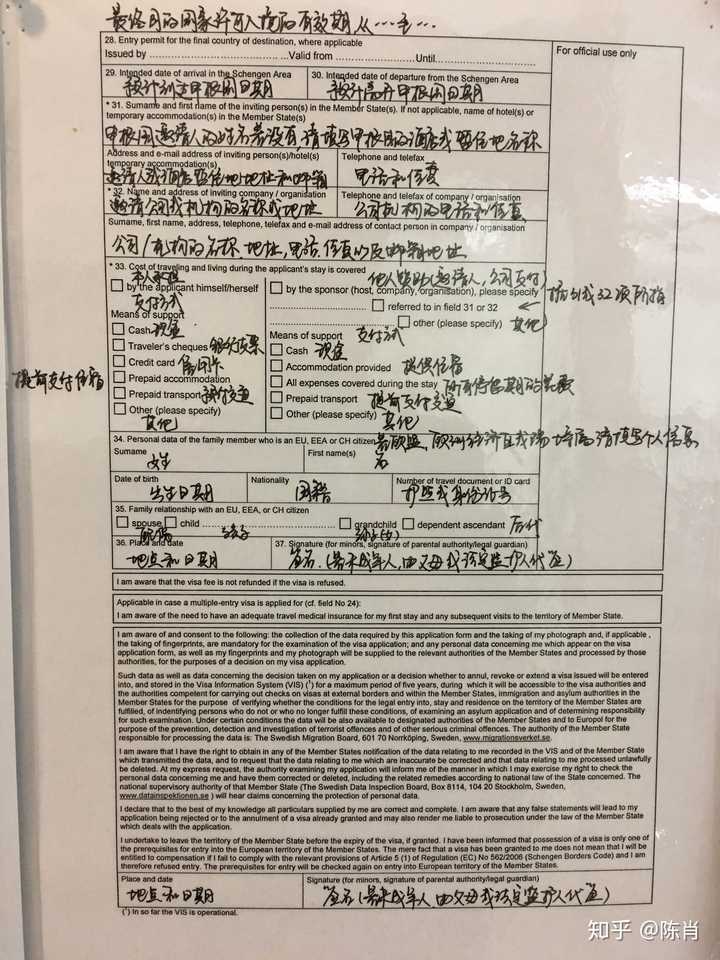 最终目的国家许可入境的有效期从……至…
28. Entry permit for the final country of destination, where applicable
Issued by ........................... Valid from ........................Until...........................
For official use only
29. Intended date of arrival in the Schengen Area
预计到达申根国日期
30. Intended date of departure from the Schengen Area
预计离开申根国日期
* 31. Surname and first name of the inviting person(s) in the Member State(s). If not applicable, name of hotel(s) or
temporary accommodation(s) in the Member State(s)
申根国邀请人的姓名若没有,请填写申根国的酒店或暂住地名称
Address and e-mail address of inviting person(s)/hotel(s)
temporary accommodation(s)
邀请人或酒店暂住地地址和邮箱
Telephone and telefax
电话和传真
* 32. Name and address of inviting company / organisation
邀请公司或机构的名称或地址
Telephone and telefax of company / organisation
公司机构的电话和传真
Surname, first name, address, telephone, telefax and e-mail address of contact person in company / organisation
公司/机构的名称、地址,电话,传真以及邮箱地址
* 33. Cost of traveling and living during the applicant's stay is covered
本人承担
by the applicant himself/herself
支付方式
Means of support
Cash 现金
Traveler's cheques 银行支票
Credit card 信用卡
Prepaid accommodation
提前支付住宿
Prepaid transport 预付交通
Other (please specify)
其他
他人赞助(邀请人,公司支付)
by the sponsor (host, company, organisation), please specify
referred to in field 31 or 32
31或32项所指
other (please specify) 其他
Means of support 支付方式
Cash 现金
Accommodation provided 提供住宿
All expenses covered during the stay 所有停留期的花费
Prepaid transport 提前支付交通
Other (please specify)
其他
34. Personal data of the family member who is an EU, EEA or CH citizen
Surname
姓
First name(s)
名
Date of birth
出生日期
Nationality
国籍
Number of travel document or ID card
护照或身份证号
35. Family relationship with an EU, EEA, or CH citizen
spouse child ........................ grandchild dependent ascendant 后代
配偶 孩子 孙子(女)
36. Place and date
地点和日期
37. Signature (for minors, signature of parental authority/legal guardian)
签名.(若未成年人,由父母或法定监护人代签)
I am aware that the visa fee is not refunded if the visa is refused.
Applicable in case a multiple-entry visa is applied for (cf. field No 24):
I am aware of the need to have an adequate travel medical insurance for my first stay and any subsequent visits to the territory of Member State.
I am aware of and consent to the following: the collection of the data required by this application form and the taking of my photograph and, if applicable ,
the taking of fingerprints, are mandatory for the examination of the visa application; and any personal data concerning me which appear on the visa
application form, as well as my fingerprints and my photograph will be supplied to the relevant authorities of the Member States and processed by those
authorities, for the purposes of a decision on my visa application.
Such data as well as data concerning the decision taken on my application or a decision whether to annul, revoke or extend a visa issued will be entered
into, and stored in the Visa Information System (VIS) (¹) for a maximum period of five years, during which it will be accessible to the visa authorities and
the authorities competent for carrying out checks on visas at external borders and within the Member States, immigration and asylum authorities in the
Member States for the purpose of verifying whether the conditions for the legal entry into, stay and residence on the territory of the Member States are
fulfilled, of indentifying persons who do not or who no longer fulfil these conditions, of examining an asylum application and of determining responsibility
for such examination. Under certain conditions the data will be also available to designated authorities of the Member States and to Europol for the
purpose of the prevention, detection and investigation of terrorist offences and of other serious criminal offences. The authority of the Member State
responsible for processing the data is: The Swedish Migration Board, 601 70 Norrköping, Sweden, www.migrationsverket.se.
I am aware that I have the right to obtain in any of the Member States notification of the data relating to me recorded in the VIS and of the Member State
which transmitted the data, and to request that the data relating to me which are inaccurate be corrected and that data relating to me processed unlawfully
be deleted. At my express request, the authority examining my application will inform me of the manner in which I may exercise my right to check the
personal data concerning me and have them corrected or deleted, including the related remedies according to national law of the State concerned. The
national supervisory authority of that Member State (The Swedish Data Inspection Board, Box 8114, 104 20 Stockholm, Sweden,
www.datainspektionen.se ) will hear claims concerning the protection of personal data.
I declare that to the best of my knowledge all particulars supplied by me are correct and complete. I am aware that any false statements will lead to my
application being rejected or to the annulment of a visa already granted and may also render me liable to prosecution under the law of the Member State
which deals with the application.
I undertake to leave the territory of the Member State before the expiry of the visa, if granted. I have been informed that possession of a visa is only one of
the prerequisites for entry into the European territory of the Member States. The mere fact that a visa has been granted to me does not mean that I will be
entitled to compensation if I fail to comply with the relevant provisions of Article 5 (1) of Regulation (EC) No 562/2006 (Schengen Borders Code) and I am
therefore refused entry. The prerequisites for entry will be checked again on entry into European territory of the Member States.
Place and date
地点和日期
Signature (for minors, signature of parental authority/legal guardian)
签名(若未成年人 由父母或法定监护人代签)
(¹) In so far the VIS is operational.
知乎 @陈肖